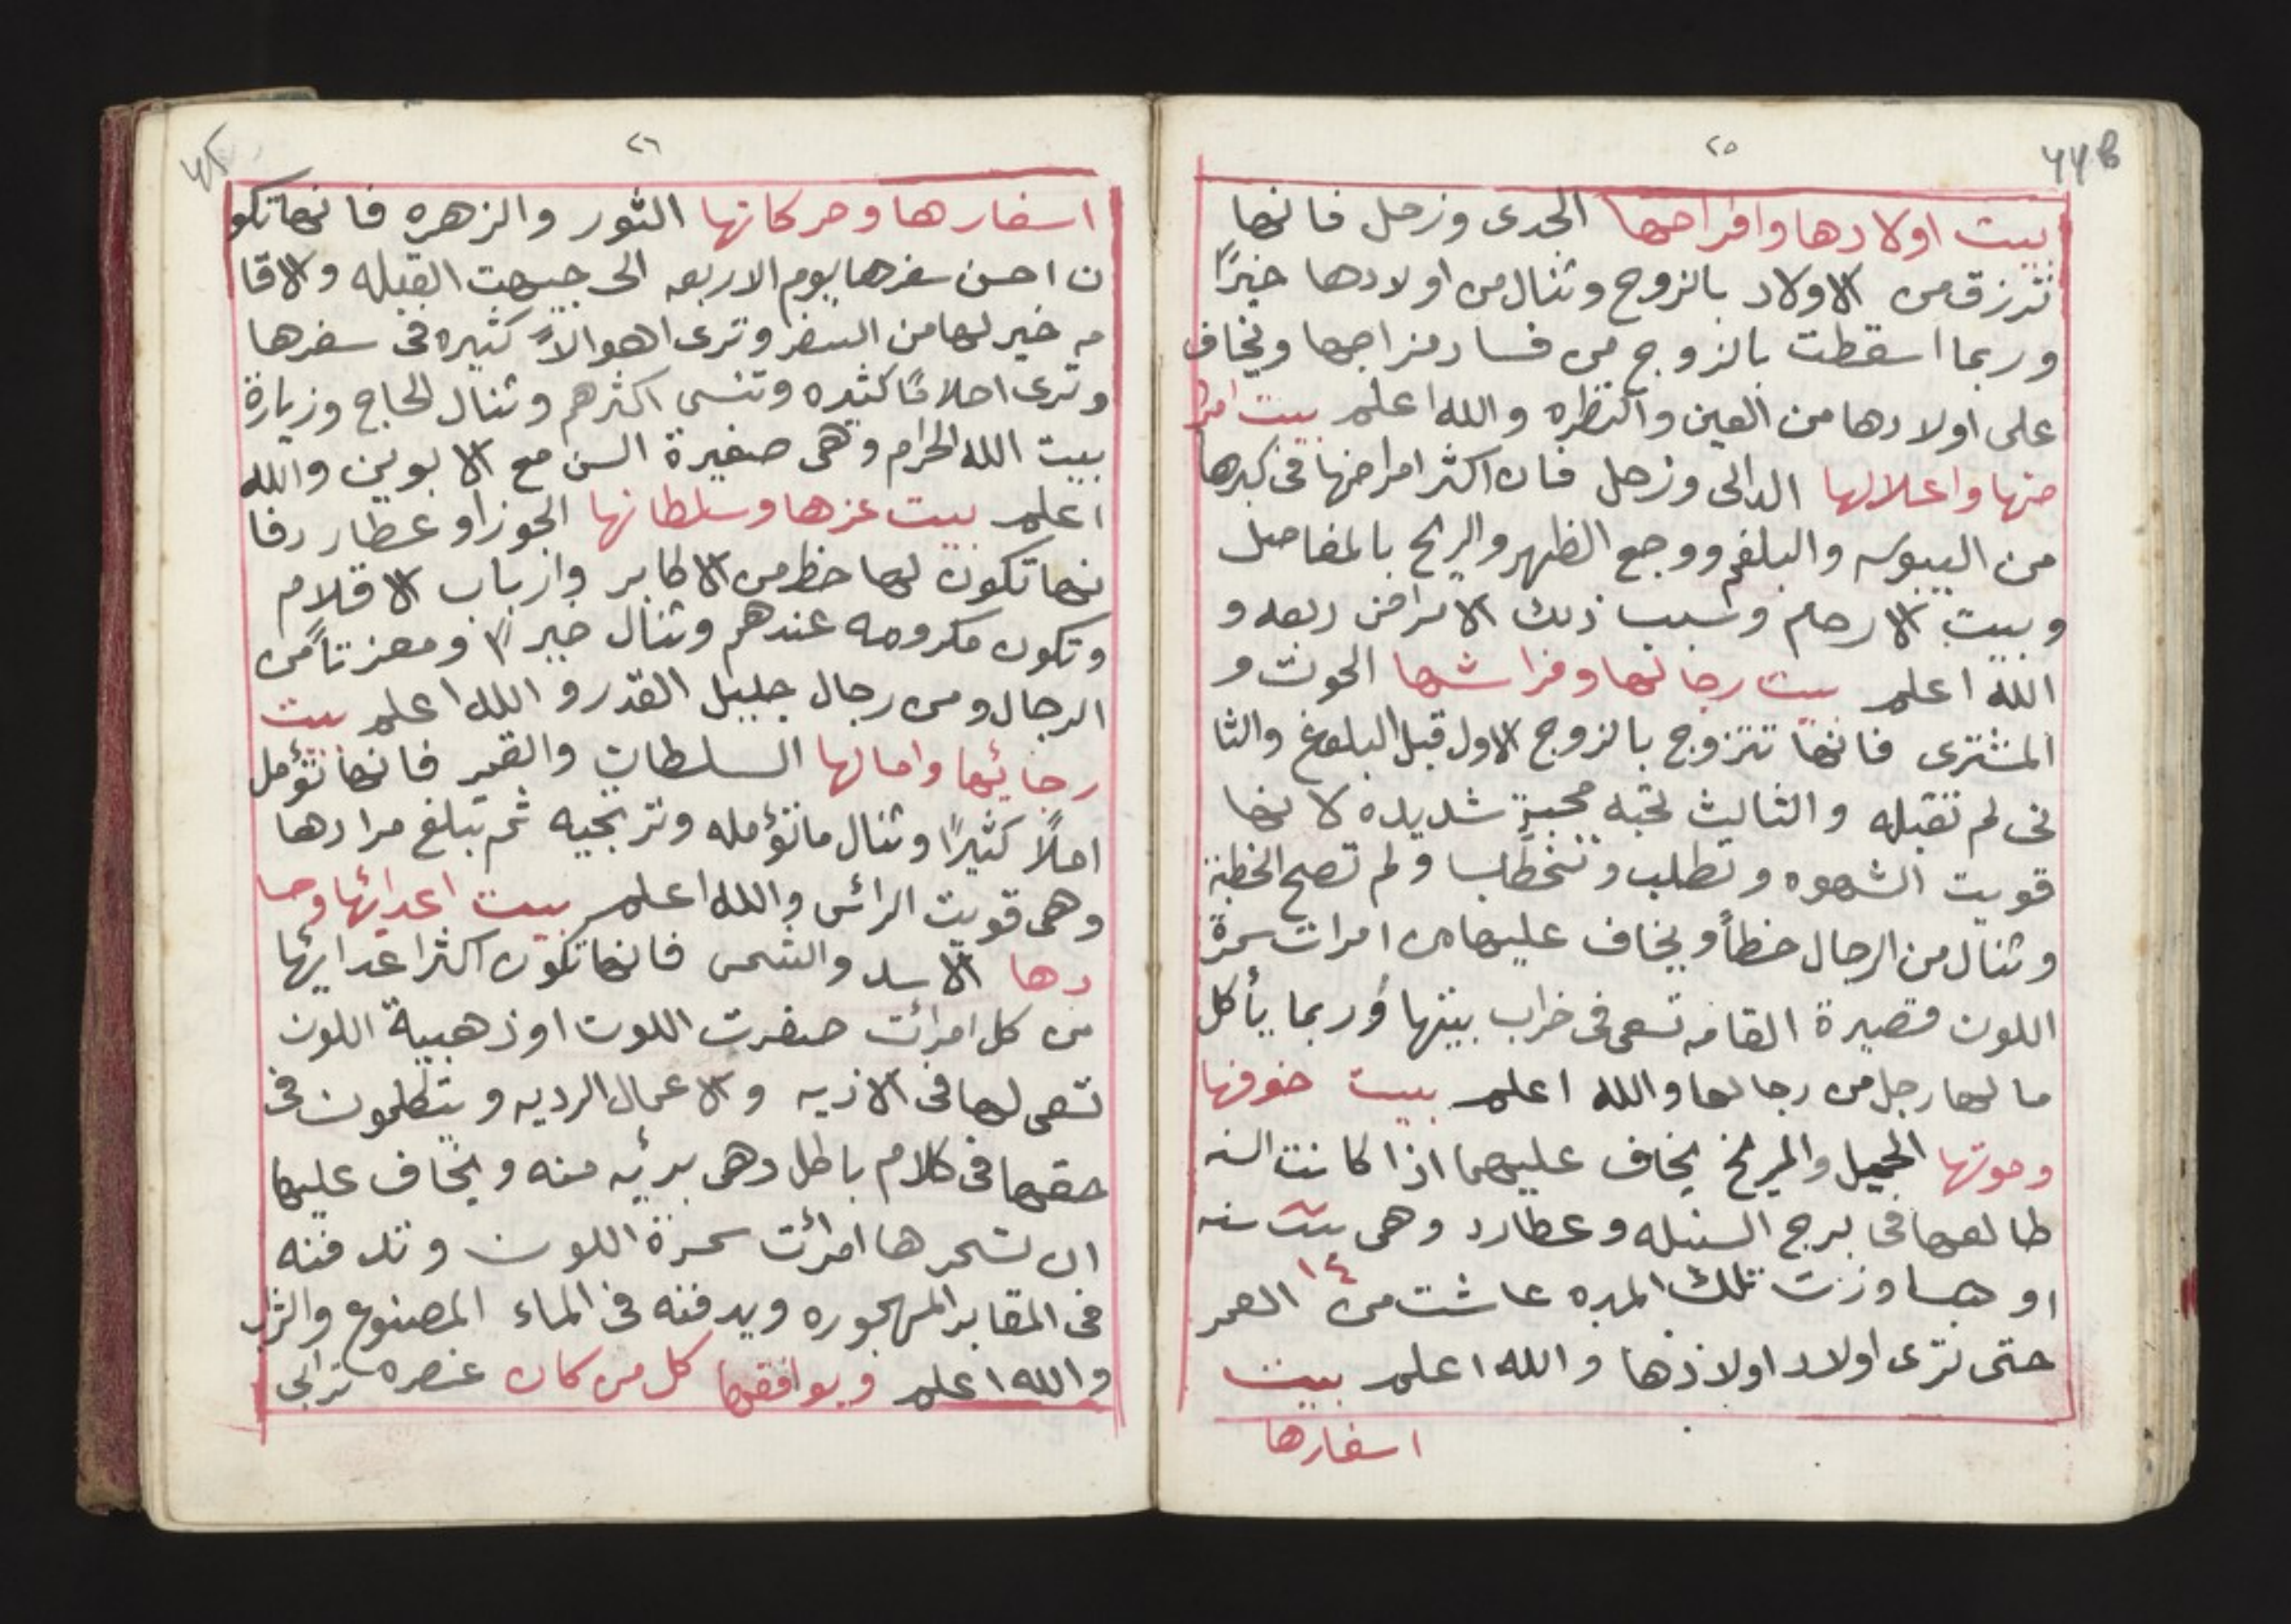 ٢٥
بيت اولادها وافراحها الجدى وزحل فانها
ترزق من الاولاد بالزوج وتنال من اولادها خيرًا
وربما اسقطت بالزوج من فساد مزاجها ويخاف
على اولادها من العين والنظره والله اعلم بيت امرا
ضها واعلالها الدالى وزحل فان اكثر امراضها فى كبرها
من اليبوسه والبلغم ووجع الظهر والريح بالمفاصل
وبيت الارحام وسبب ذلك الامراض ربعه و
الله اعلم بيت رجالها وفراشها الحوت و
المشترى فانها تتزوج بالزوج الاول قبل البلوغ والثا
نى لم تقبله والثالث تحبه محبةٍ شديده لانها
قويت الشهوه وتطلب وتنخطب ولم تصح الخطبة
وتنال من الرجال حظاً ويخاف عليها من امرات سمرة
اللون قصيرة القامه تسعى فى خراب بيتها وربما يأكل
مالها رجل من رجالها والله اعلم بيت خوفها
وموتها الحمل والمريخ يخاف عليها اذا كانت
طالعها فى برج السنبله وعطارد وهى بنت سنه
١٤
او جاوزت تلك المده عاشت من العمر
حتى ترى اولاد اولادها والله اعلم بيت
اسفارها
٢٦
اسفارها وحركاتها الثور والزهره فانها تكو
ن احسن سفرها يوم الاربعه الى جيهت القبله والاقا
مه خير لها من السفر وترى اهوالاً كثيره فى سفرها
وترى احلامًا كثيره وتنسى اكثرهم وتنال الحاج وزيارة
بيت الله الحرام وهى صغيرة السن مع الابوين والله
اعلم بيت عزها وسلطانها الجوزاو عطارد فا
نها تكون لها حظ من الاكابر وارباب الاقلام
وتكون مكرومه عندهم وتنال خيرًا ومعزتاً من
الرجال ومن رجال جليل القدر و الله اعلم بيت
رجائها وامالها السلطان والقمر فانها تؤمل
املًا كثيرًا وتنال ما تؤمله وترتجيه ثم تبلغ مرادها
وهى قويت الرائس والله اعلم بيت اعدائها وحسا
دها الاسد والشمس فانها تكون اكثر اعدايها
من كل امرائت صفرت اللون او ذهبية اللون
تسعى لها فى الاذيه والاعمال الرديه ويتكلمون فى
حقها فى كلام باطل وهى بريئه منه ويخاف عليها
ان تسحرها امرائت سمرة اللون وتدفنه
فى المقابر المهجوره ويدفنه فى الماء المصنوع والتراب
والله اعلم ويوافقها كل من كان عنصره ترابى